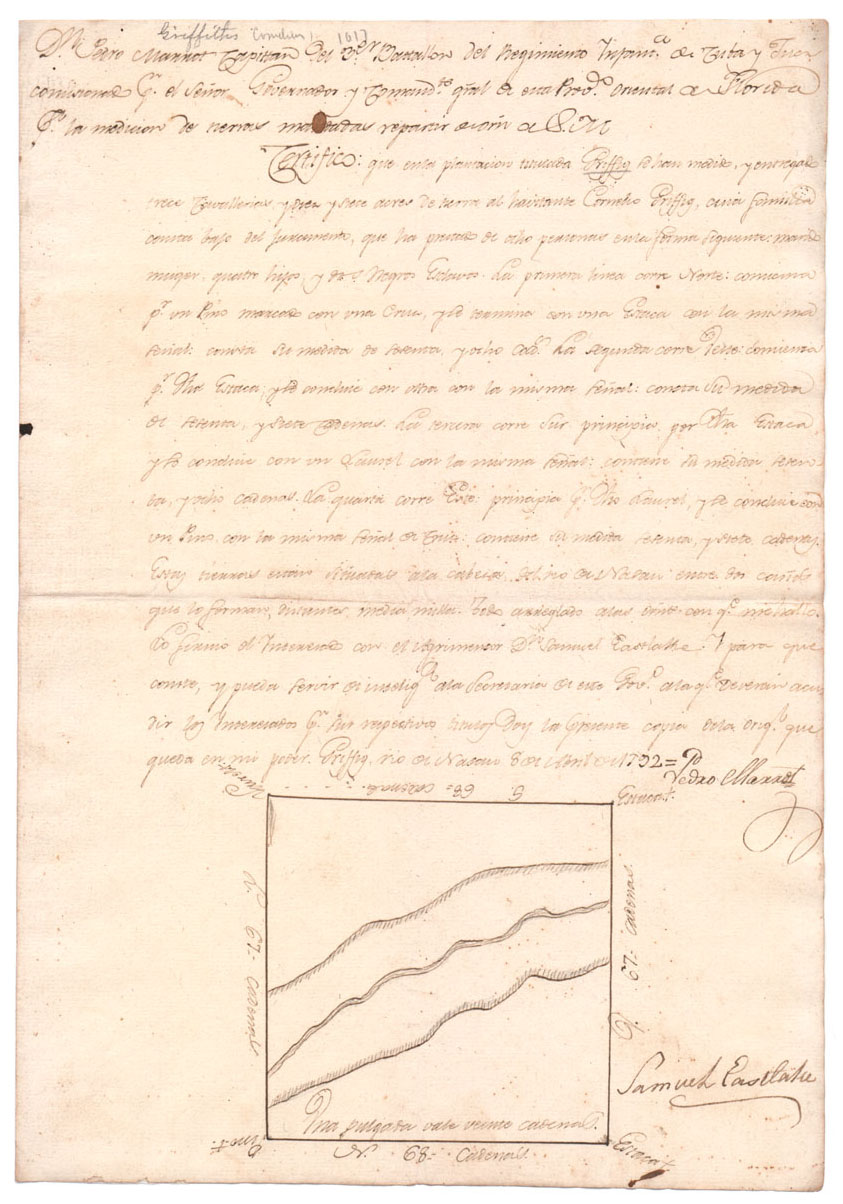 Griffith Cornelius 1617
Dn. Pedro Marrot Capittan del 3er. Batallon del Regimiento Infantª. de Cuba y Juez
comisionado pr. el Señor Governador y Comandte. gral de esta Provª. Oriental de Florida
pª. la medicion de tierras mandadas repartir de orn de S.M
Certifico: que en la plantacion titulada Griffig se han medido, y entregado
trece Cavallerias, y siete acres de tierra al havitante Cornelio Griffig, cuia familia
consta bajo del juramento, que ha prestado de ocho personas en la forma siguiente: marido
muger, quatro hijos, y dos Negros Esclavos. La primera linea corre Norte: comienza
pr. un Pino marcado con una Cruz, y se termina con una Estaca con la misma
señal: consta su medida de setenta, y ocho cads. La segunda corre Oeste: comienza
pr. dha Estaca, y se concluie con otra con la misma señal: consta su medida
de setenta, y siete cadenas. La tercera corre Sur principia por dha Estaca
y se concluie con un Laurel con la misma señal: contiene su medida seten-
ta, y ocho cadenas. La quarta corre Este: principia pr. dho Laurel, y se concluie con
un Pino con la misma señal de Cruz: contiene su medida setenta, y siete cadenas.
Estas tierras estan situadas a la cabesa del rio de Nasau entre dos caños
que lo forman, distantes media milla. Todo arreglado a las con que me hallo.
Lo firmó el Interesado con el Agrimensor Dn. Samuel Eastlake. Y para que
conste, y pueda servir de inteligª. a la Secretaria de este Govo. a la qe. deverán acu-
dir los Interesados pr. sus respectivos titulos Doy la presente copia de la origl. que
queda en mi poder. Griffig, rio de Nasau 8 de Abril de 1792=
Pedro Marrot
Laurel+ S 68= cadenas Estaca+.
O. 67- cadenas
E. 67- cadenas
Samuel Eastlake
Una pulgada vale veinte cadenas.
Pino+ N. 68= Cadenas Estaca+